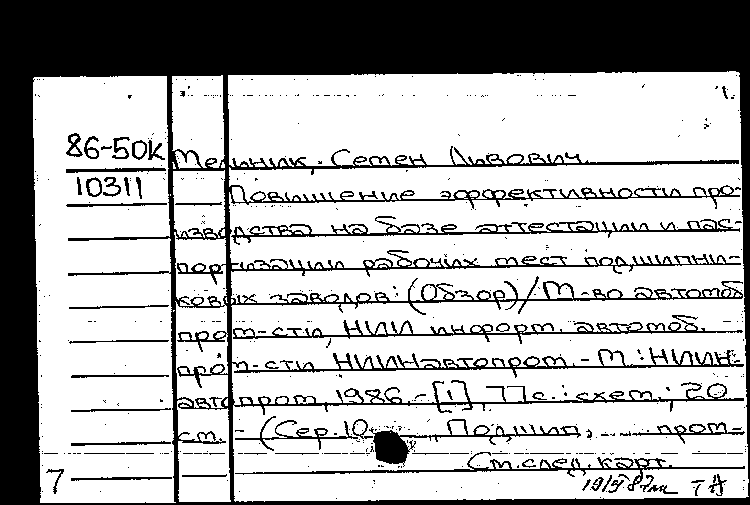 86-50к
Мельник, Семен Львович.
10311
Повышение эффективности про-
изводства на базе аттестации и пас-
портизации рабочих мест подшипни-
ковых заводов: (Обзор) / М-во автомоб.
пром-сти, НИИ информ. автомоб.
пром-сти, НИИНавтопром. - М.: НИИН-
автопром, 1986. - [1], 77 с.: схем.; 20
см. - (Сер. 10 Подшип. пром-
См. след. карт.
7